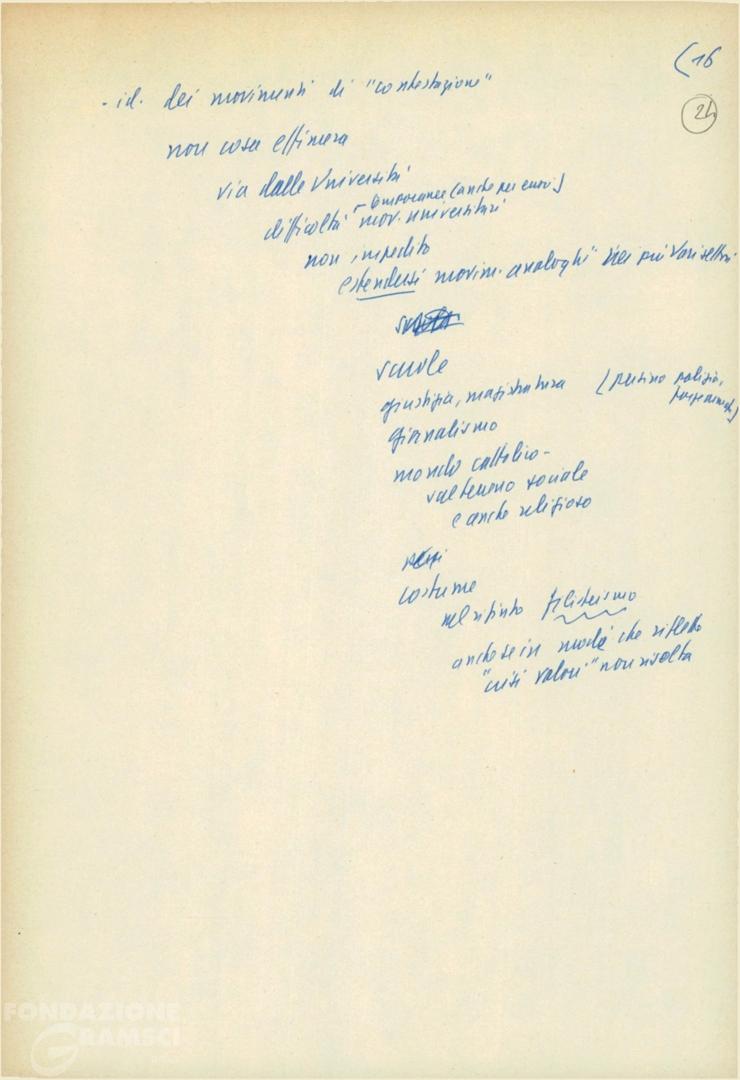 (16
24
- id. dei movimenti di "contestazione"
non cosa effimera
via dalle Università
temporanee (anche per errori)
difficoltà mov. universitari
non impedito
estendersi movim. analoghi nei più vari settori
scuole
giustizia, magistratura (persino polizia,
giornalismo
mondo cattolico -
sul terreno sociale
e anche religioso
costume
nel rifiuto filisteismo
anche se in modi che riflette
"crisi valori" non risolta
FONDAZIONE
GRAMSCI